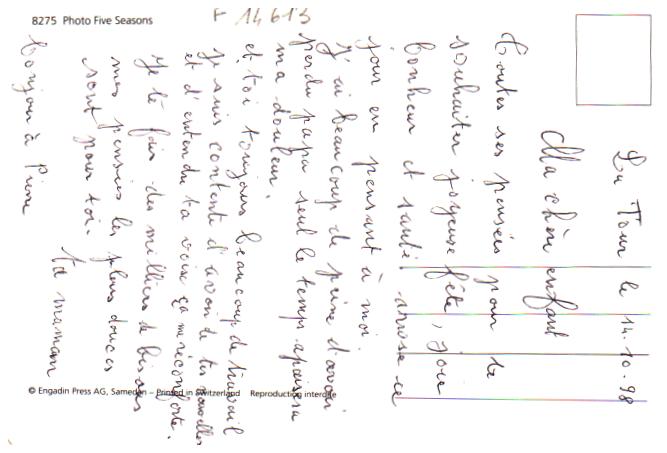 8275 Photo Five Seasons
F 14613
La Tour le 14.10.98
Ma chère enfant
Toutes ses pensées pour te
souhaiter joyeuse fête, joie
bonheur et santé. arrose ce
jour en pensant à moi.
J'ai beaucoup de peine d'avoir
perdu papa seul le temps apaisera
ma douleur.
et toi toujours beaucoup de travail
Je suis contente d'avoir de tes nouvelles
et d'entendu ta voix ça me réconforte.
Je te fais des milliers de bisous
mes pensées les plus douces
sont pour toi.
Ta maman
bonjour à Pierre
© Engadin Press AG, Samedan – Printed in Switzerland Reproduction interdite